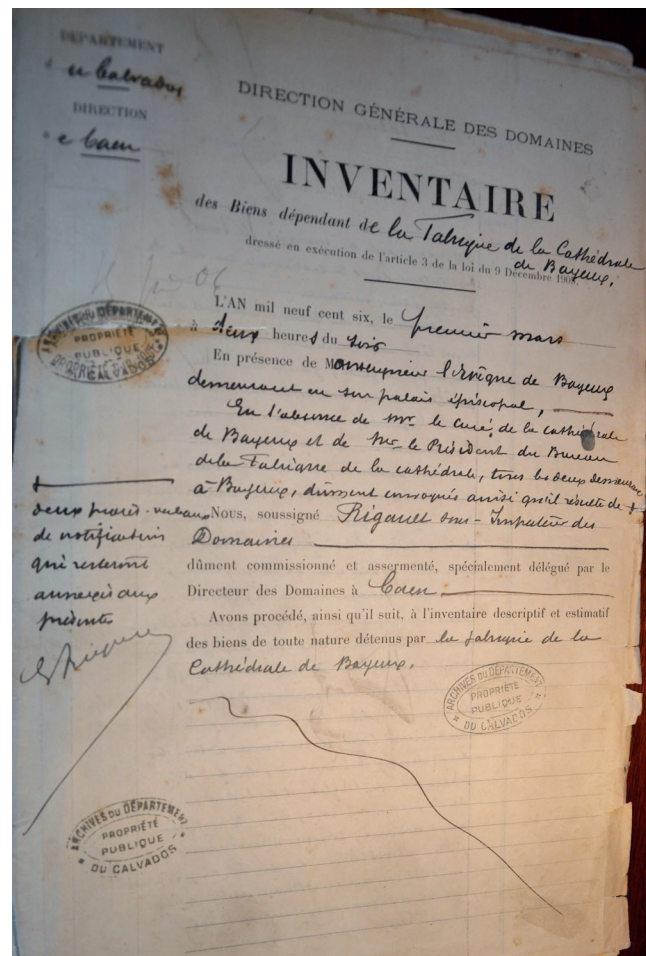 DÉPARTEMENT
du Calvados
DIRECTION
de Caen
DIRECTION GÉNÉRALE DES DOMAINES
INVENTAIRE
des Biens dépendant de la Fabrique de la Cathédrale
de Bayeux,
dressé en exécution de l'article 3 de la loi du 9 Décembre 1905.
L'AN mil neuf cent six, le premier mars
à deux heures du soir
En présence de Monseigneur l'Evêque de Bayeux
demeurant en son palais épiscopal,
En l'absence de Mr. le curé, de la cathédrale
de Bayeux et de Mr. le Président du Bureau
de la Fabrique de la cathédrale, tous les deux demeurant
à Bayeux, dûment convoqués ainsi qu'il résulte de
deux procès-verbaux
de notification
qui resteront
annexés aux
présentes
Nous, soussigné Rigault sous-Inspecteur des
Domaines
dûment commissionné et assermenté, spécialement délégué par le
Directeur des Domaines à Caen
Avons procédé, ainsi qu'il suit, à l'inventaire descriptif et estimatif
des biens de toute nature détenus par la fabrique de la
Cathédrale de Bayeux.
ARCHIVES DU DÉPARTEMENT
PROPRIÉTÉ
PUBLIQUE
DU CALVADOS
ARCHIVES DU DÉPARTEMENT
PROPRIÉTÉ
PUBLIQUE
DU CALVADOS
ARCHIVES DU DÉPARTEMENT
PROPRIÉTÉ
PUBLIQUE
DU CALVADOS